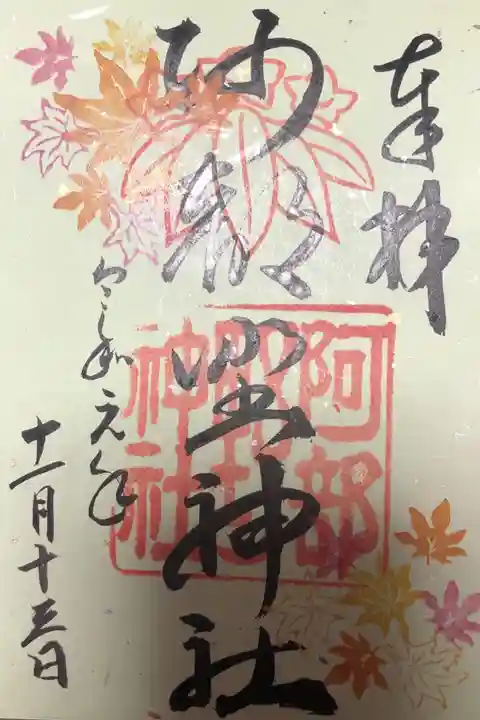 奉拝
阿部野神社
阿部
神社
令和元年
十一月十三日